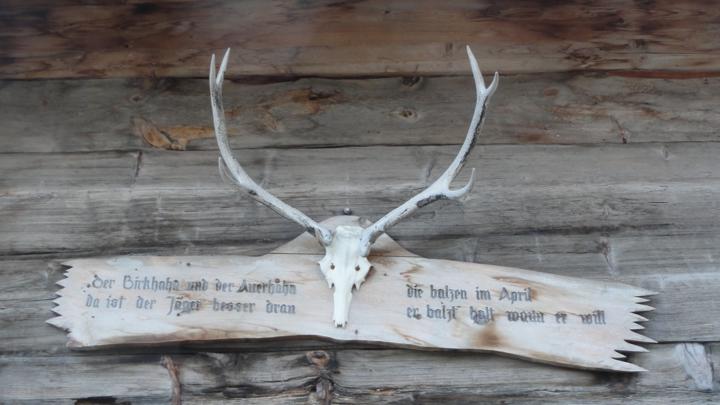 der Birkhahn und der Auerhahn
da ist der Jäger besser dran
die balzen im April
er balzt halt wann er will